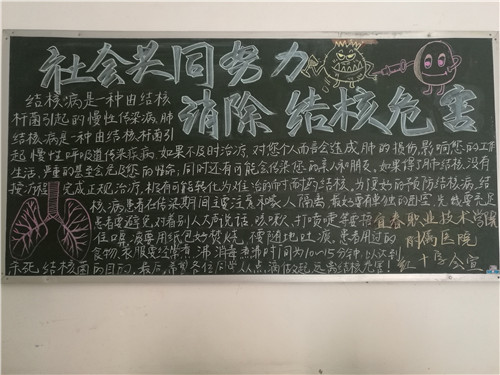 社会共同努力
消除结核危害
结核病是一种由结核
杆菌引起的慢性传染病,肺
结核病是一种由结核杆菌引
起慢性呼吸道传染疾病,如果不及时治疗,对您个人而言会造成肺的损伤,影响您的工作
生活,严重的甚至会危及您的生命,同时还有可能会传染您的亲人和朋友,如果得了肺结核,没有
按疗程完成正规治疗,极有可能转化为难治的耐药结核,为了更好的预防结核病,结
核病患者在传染期间主要注意和家人隔离
患者要避免对着别人大声说话,咳嗽,打喷嚏等要捂
住口鼻,痰要用纸包好焚烧,不要随地吐痰,患者用过的
食物,衣服 煮沸消毒,煮沸时间为10-15分钟,以达到
杀死结核菌的目的 远离结核危害!
宜春职业技术学院
附属医院
红十字会宣